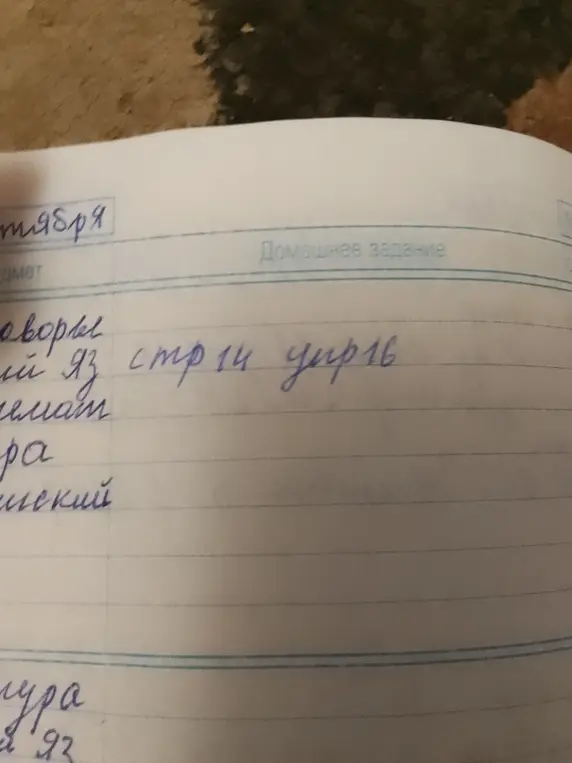 тября
дмет Домашнее задание
оворы
ий яз стр 14 упр 16
емат
ра
ийский
тура
й яз